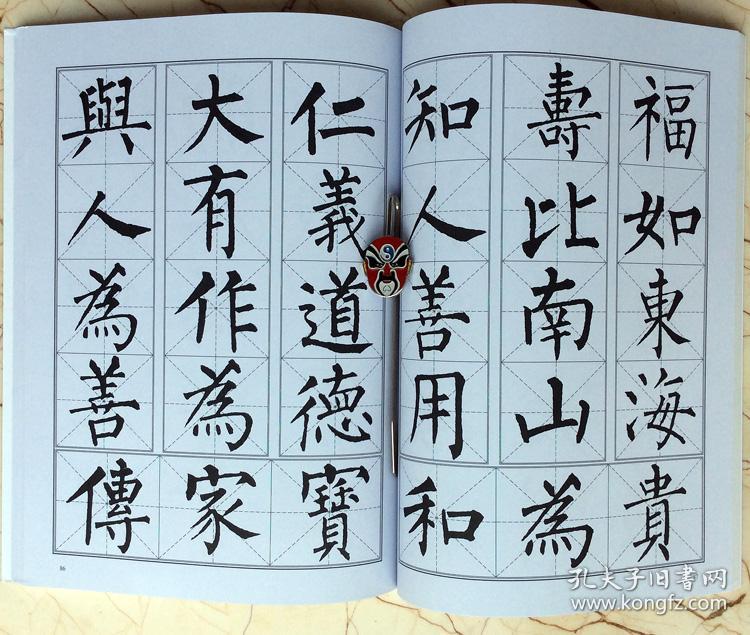 福如東海
壽比南山
知人善用
和為貴
仁義道德
大有作為
與人為善
傳家寶
86
孔夫子旧書网
www.kongfz.com